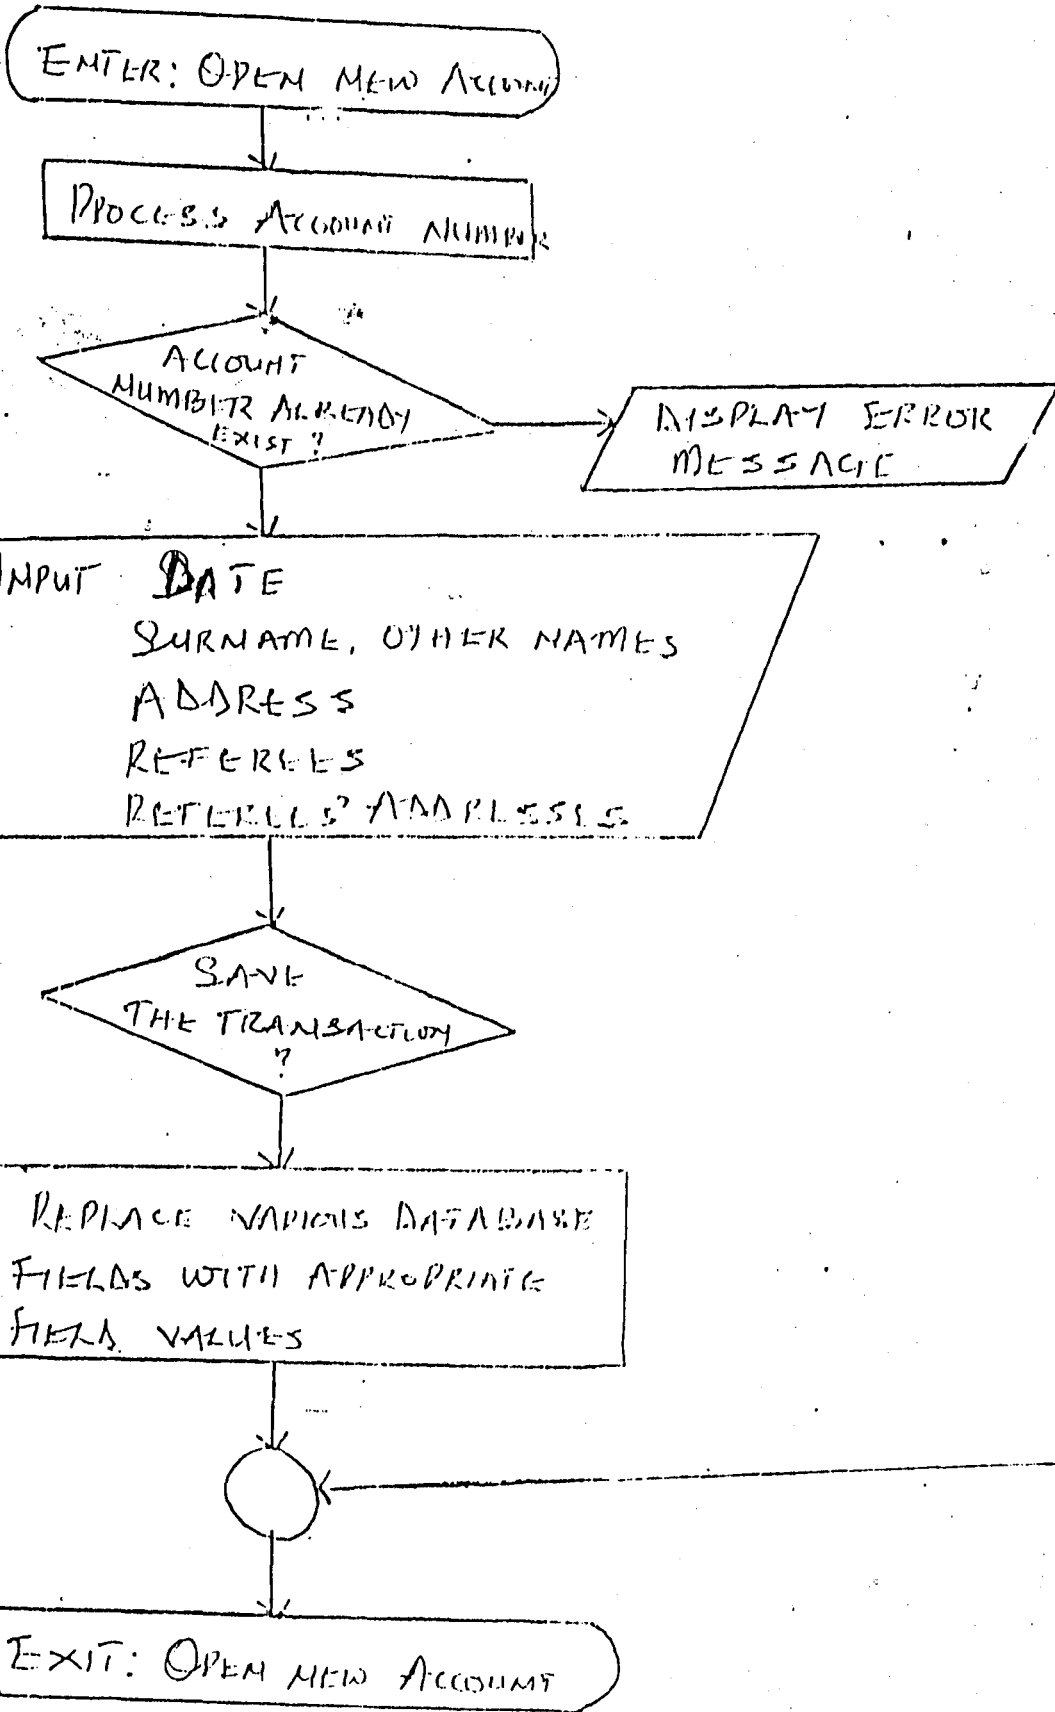 ENTER: OPEN NEW ACCOUNT
PROCESS ACCOUNT NUMBER
ACCOUNT
NUMBER ALREADY
EXIST ?
DISPLAY ERROR
MESSAGE
INPUT DATE
SURNAME, OTHER NAMES
ADDRESS
REFEREES
REFEREES' ADDRESSES
SAVE
THE TRANSACTION
?
REPLACE VARIOUS DATABASE
FIELDS WITH APPROPRIATE
FIELD VALUES
EXIT: OPEN NEW ACCOUNT